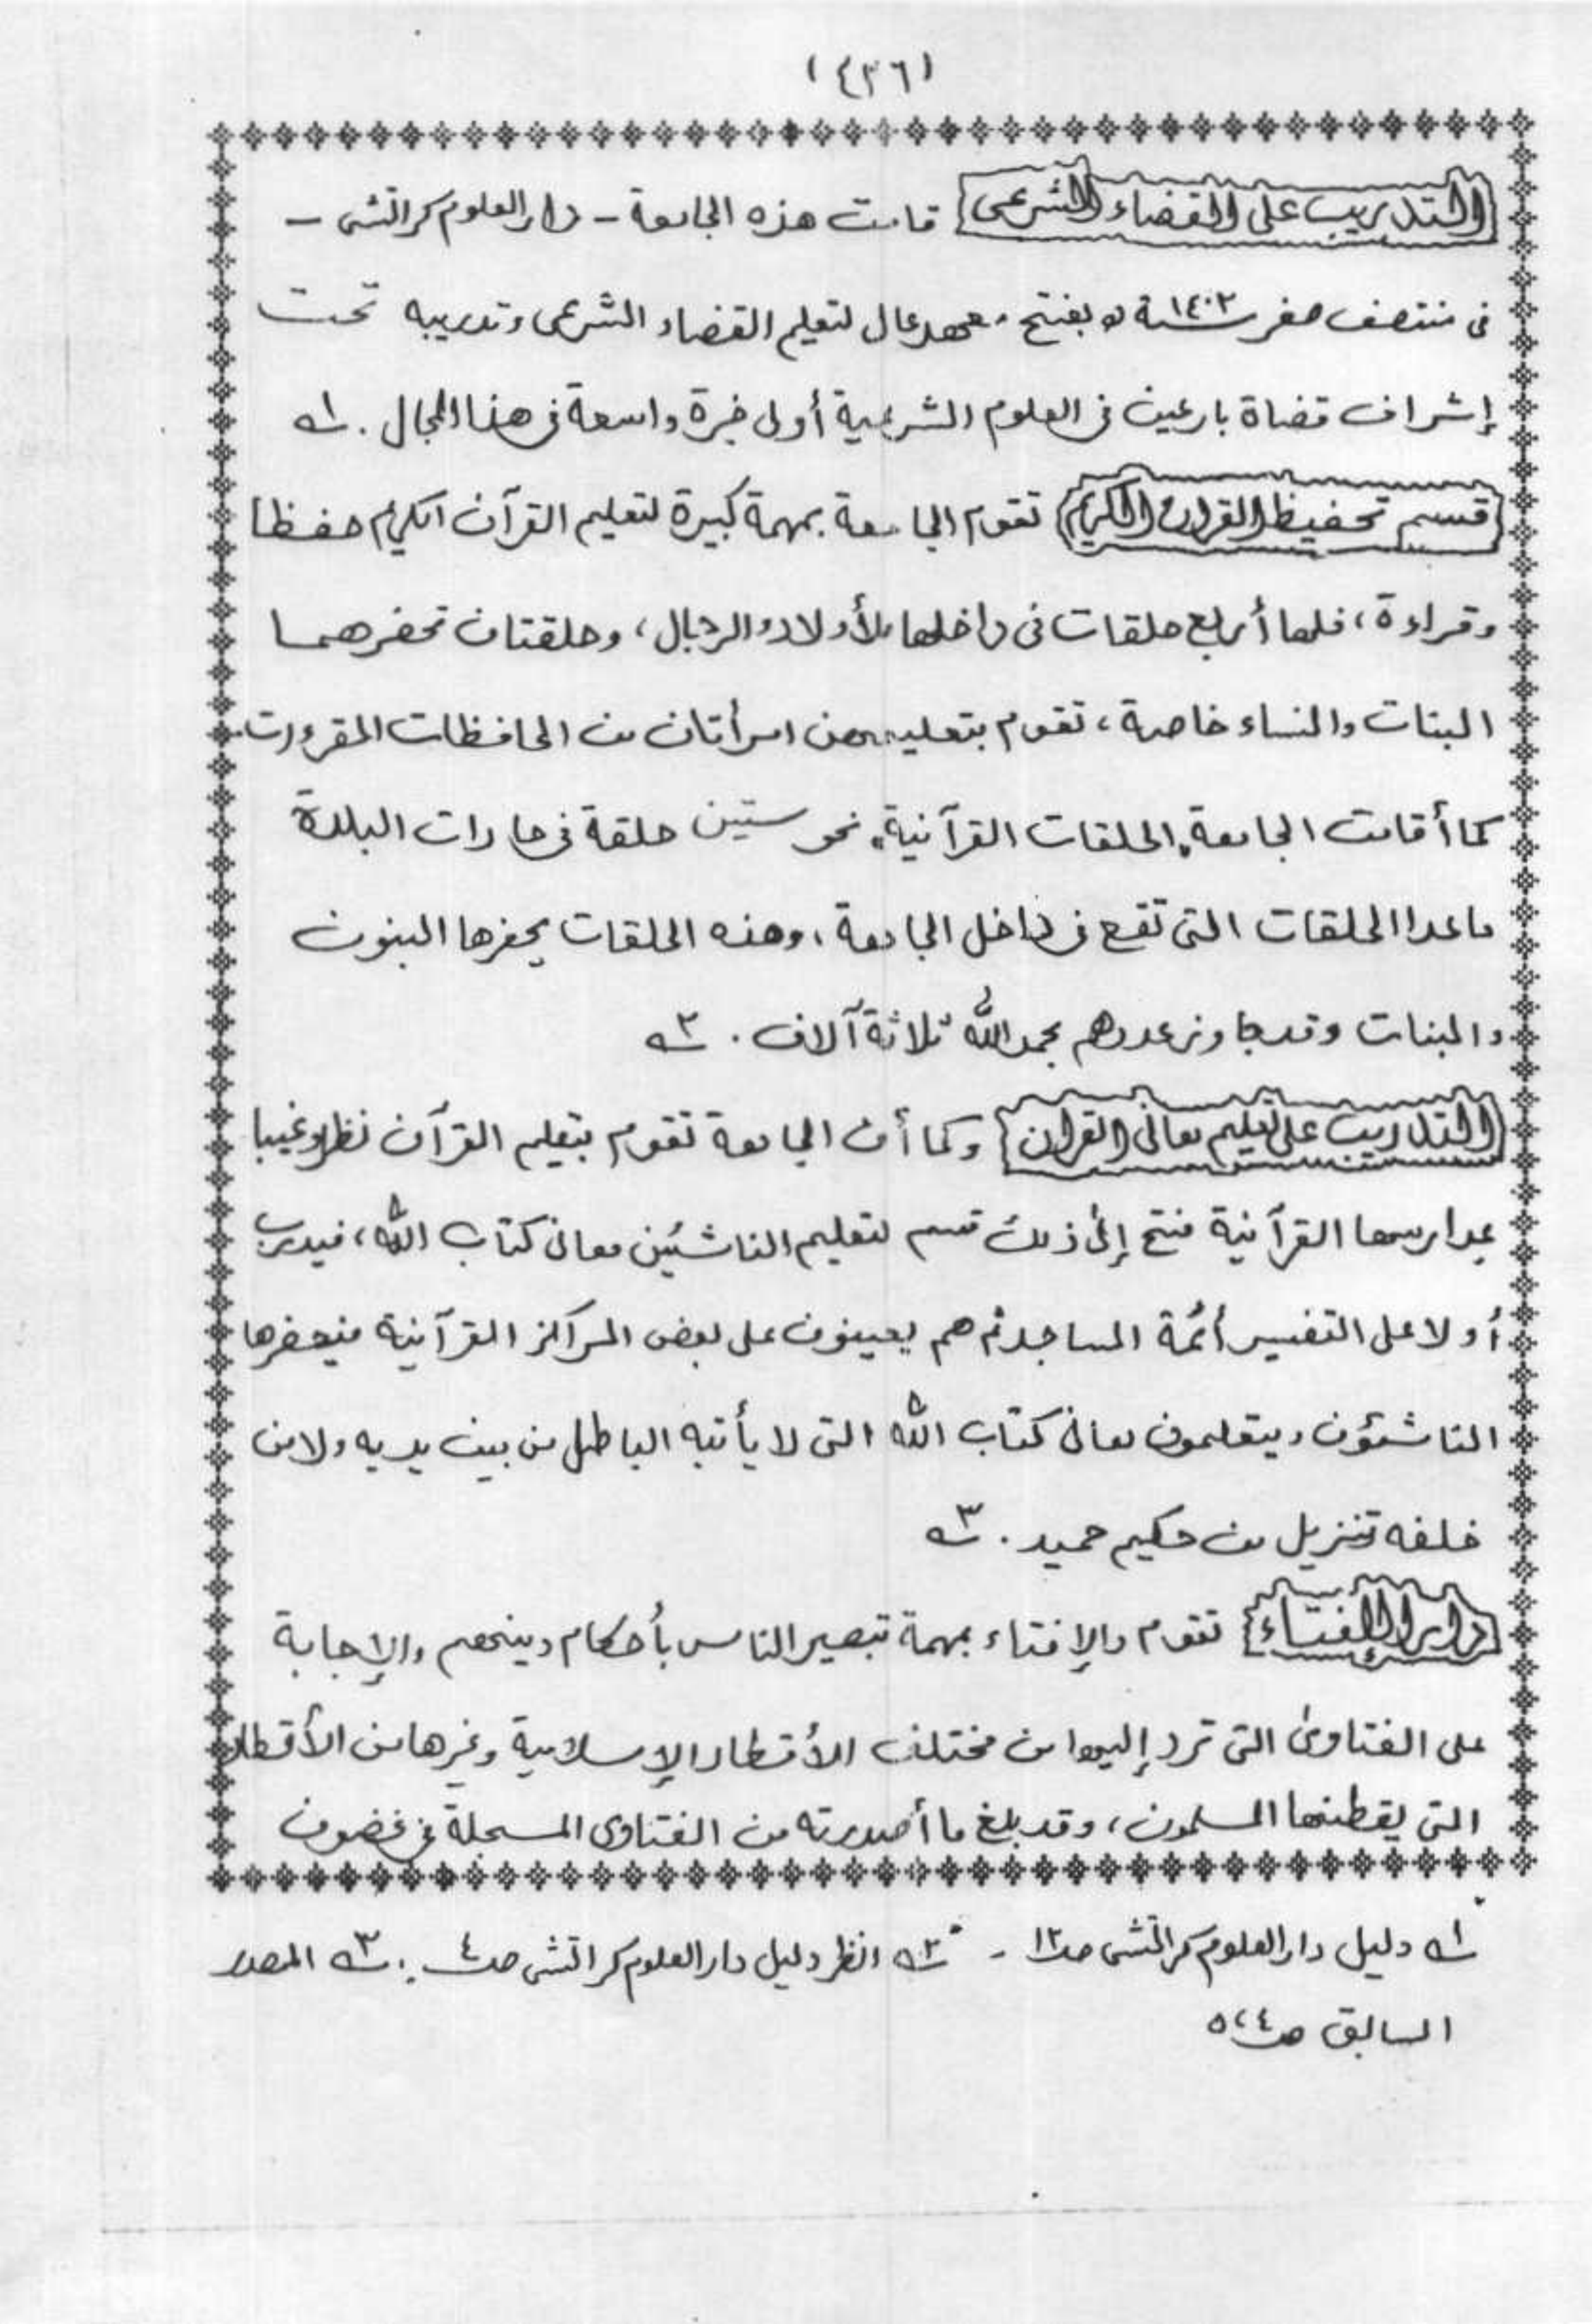 (٤٣٦)
التدريب على القضاء الشرعى قامت هذه الجامعة - دار العلوم كراتشى -
فى منتصف صفر سنة ١٤٠٢ه بفتح معهد عال لتعليم القضاء الشرعى وتدريبه تحت
إشراف قضاة بارعين فى العلوم الشرعية أولى خبرة واسعة فى هذا المجال . ١ه
قسم تحفيظ القران الكريم تقوم الجامعة بمهمة كبيرة لتعليم القرآن الكريم حفظا
وقراءة، فلها أربع حلقات فى داخلها للأولاد والرجال، وحلقتان تحضرهما
البنات والنساء خاصة، تقوم بتعليمهن امرأتان من الحافظات المقرءات.
كما أقامت الجامعة "الحلقات القرآنية" نحو ستين حلقة فى حارات البلدة
ماعدا الحلقات التى تقع فى داخل الجامعة، وهذه الحلقات يحضرها البنون
والبنات وقد جاوز عددهم بحمد الله ثلاثة آلاف . ٢ه
التدريب على تعليم معانى القران وكما أن الجامعة تقوم بتعليم القرآن نظرا وغيبا
بمدارسها القرآنية فتح إلى ذلك قسم لتعليم الناشئين معانى كتاب الله، فيدرب
أولا على التفسير أئمة المساجد ثم هم يعينون على بعض المراكز القرآنية فيحضرها
الناشئون ويتعلمون معانى كتاب الله التى لا يأتيه الباطل من بين يديه ولا من
خلفه تنزيل من حكيم حميد . ٣ه
دار الإفتاء تقوم دار الإفتاء بمهمة تبصير الناس بأحكام دينهم والإجابة
على الفتاوى التى ترد إليها من مختلف الأقطار الإسلامية وغيرها من الأقطار
التى يقطنها المسلمون، وقد بلغ ما أصدرته من الفتاوى المسجلة فى غضون
١ه دليل دار العلوم كراتشى ص١٢ - ٢ه انظر دليل دار العلوم كراتشى ص٤ . ٣ه المصدر
السابق ص٥،٤